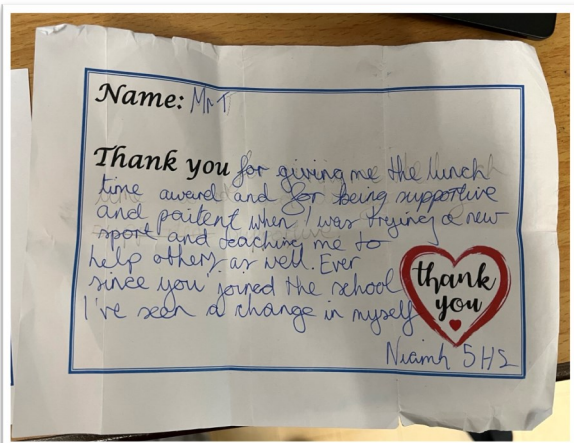 Name: Mr T
Thank you for giving me the lunch
time award and for being supportive
and paitent when I was trying a new
sport and teaching me to
help others as well. Ever
since you joined the school
I've seen a change in myself
thank
you
Niamh 5HS